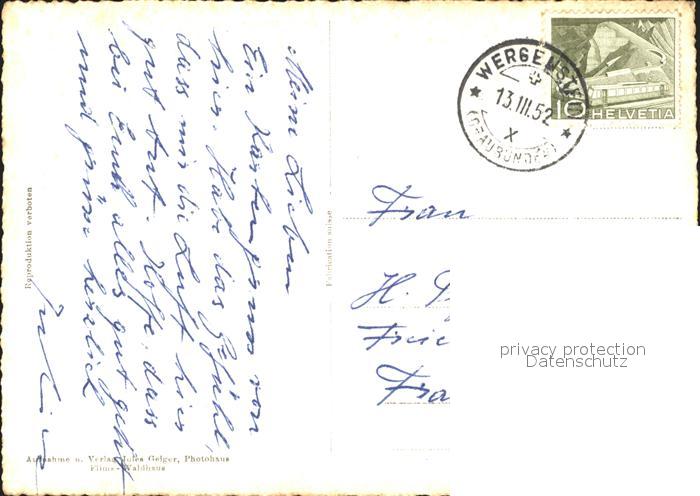 Meine Lieben
Ein Kartengruss von
hier. Habe das Gefühl,
dass mir die Luft hier
gut tut. Hoffe, dass
bei Euch alles gut geht
und grüsse herzlich
Reproduktion verboten
Aufnahme u. Verlag Jules Geiger, Photohaus
Flims-Waldhaus
Fabrication suisse
WERGENSTEIN
13.III.52
X
(GRAUBÜNDEN)
10 HELVETIA
Frau
H.
Frie
Fra
privacy protection
Datenschutz